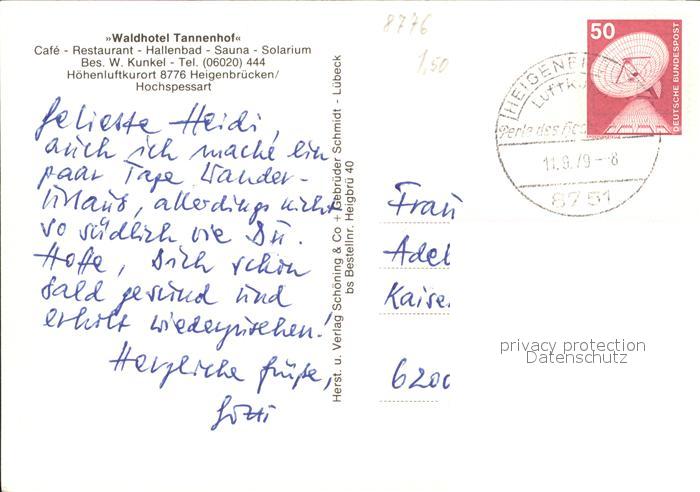 »Waldhotel Tannenhof«
Café - Restaurant - Hallenbad - Sauna - Solarium
Bes. W. Kunkel - Tel. (06020) 444
Höhenluftkurort 8776 Heigenbrücken/
Hochspessart
8776
1,50
Geliebte Heidi,
auch ich mache ein
paar Tage Wander-
urlaub, allerdings nicht
so südlich wie Du.
Hoffe, Dich schon
bald gesund und
erholt wiederzusehen!
Herzliche Grüße,
Herst. u. Verlag Schöning & Co + Gebrüder Schmidt - Lübeck
bs Bestellnr. Heigbrü 40
50
DEUTSCHE BUNDESPOST
HEIGENB
LUFTKU
Perle des
11.9.79-8
8751
Frau
Adel
Kaise
6200
privacy protection
Datenschutz